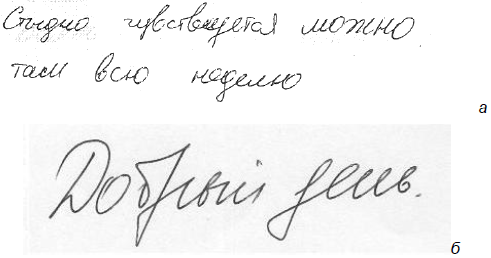 Стыдно чувствуется можно
там всю неделю
а
Добрый день.
б